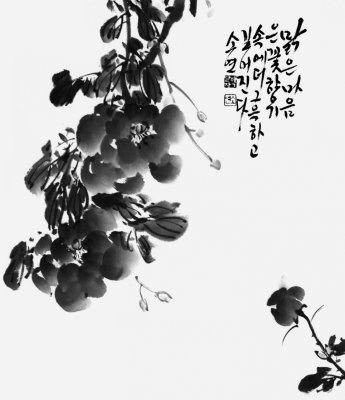 맑은 마음
은 꽃 향기
속에 더 그윽하고
깊어진다
소연